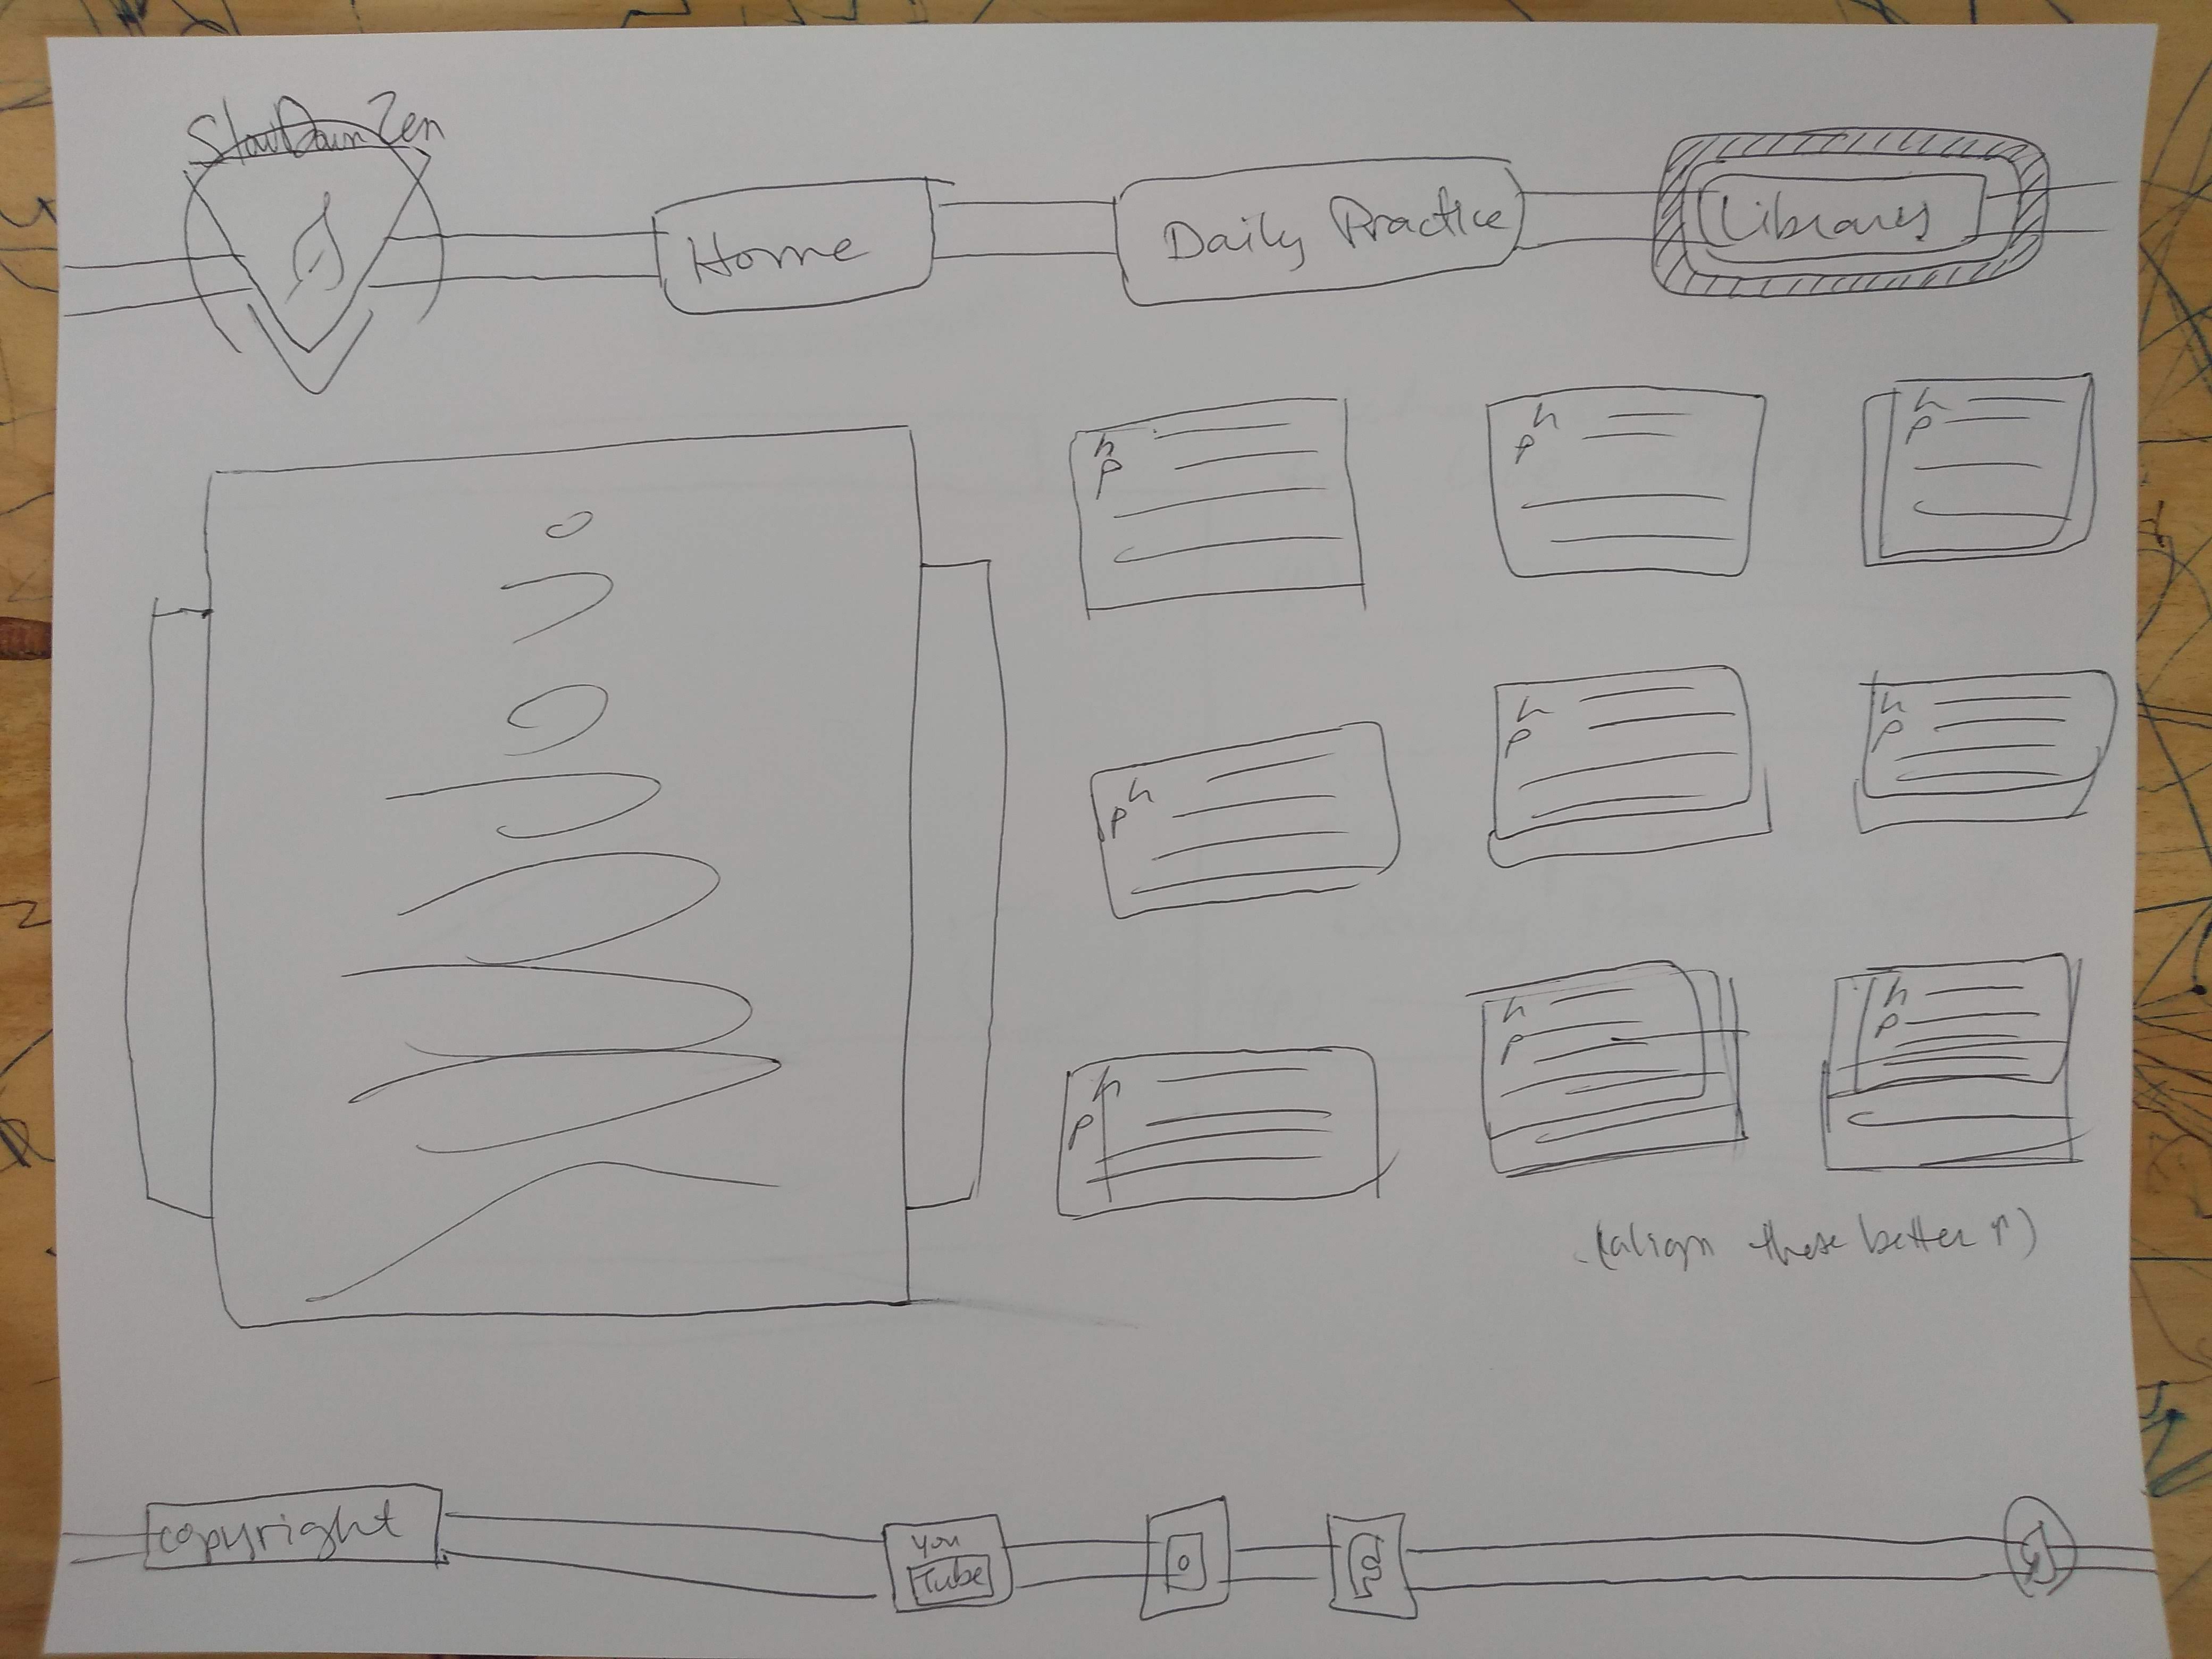 SlowDownZen
Home
Daily Practice
Library
h
p
h
p
h
p
h
p
h
p
h
p
h
p
h
p
h
p
(align these better ↑)
copyright
You
Tube
f